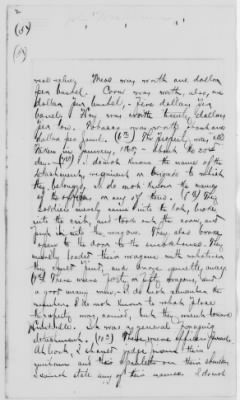 2
(5)
(5)
Meal was worth one dollar
per bushel. Corn was worth, also, one
dollar per bushel, - Five dollars per
barrel. Hay was worth twenty dollars
per ton. Tobacco was worth
dollar per pound. (6th) The property was all
taken in January, 1865, - about the
day. - (7th) I do not know the name of the
detachment, regiment or brigade to which
they belonged. I do not know the names
of the officers, or any of them. (8th) The
soldiers merely went into the lot, broke
into the crib, and took out the corn, and
put it into the wagons. They also broke
open the door to the smokehouse. They
merely loaded their wagons with whatever
they could find, and went away.
(9th) There were forty or fifty wagons, and
a good many men, - I do not remember the
numbers. I do not know to what place
the property was carried, but they went toward
It was a general foraging
detachment. (10th) There were officers present.
At least, I should judge from their
uniform and their epaulets on their shoulders.
I cannot state any of their names. I do not